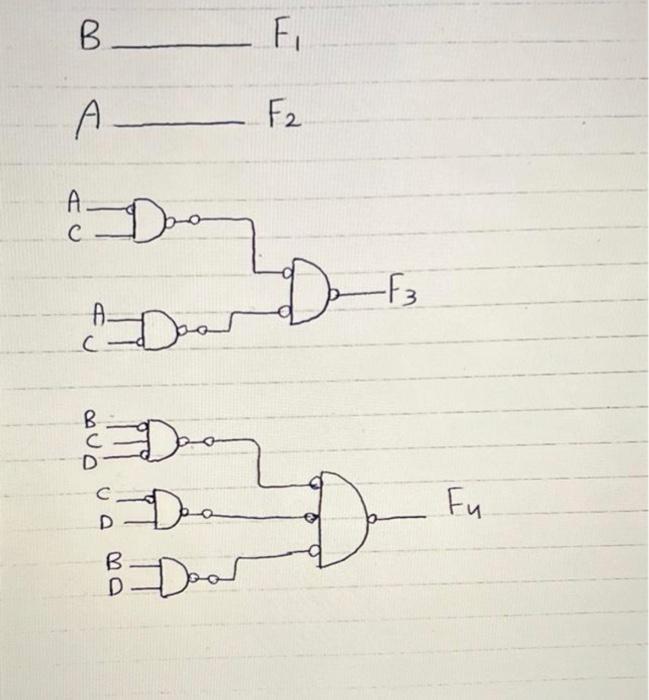 B F1
A F2
A
C
F3
A
C
B
C
D
C
D
F4
B
D